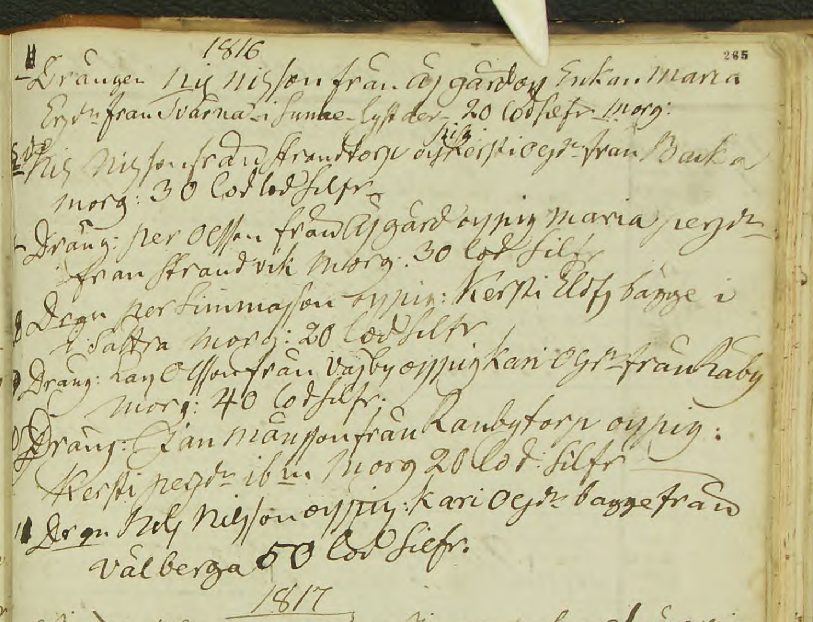 1816
265
Drängen Nils Nilsson från Åsgård oc Enkan Maria
från Svärna i Sunne 20 lod silfr morg:
Nils Nilsson från Strandtorp oc pig Kersti Olsdr från Backa
morg: 30 lod silfr
Dräng: Per Olsson från Åsgård oc pig Maria persdr
från Strandvik morg: 30 lod silfr
Drgn Per Simmasson oc pig: Kersti Elofs bägge i
Sättra morg: 20 lod silfr
Dräng: Lars Olsson från Väsby oc pig Kari Olsdr från Råby
morg: 40 lod silfr:
Dräng: Jan Månsson från Raubytorp oc pig:
Kersti persdr ibm Morg 20 lod: silfr
Drgn Nils Nilsson oc pig: Kari Olsdr bagge från
Välberga 50 lod silfr.
1817